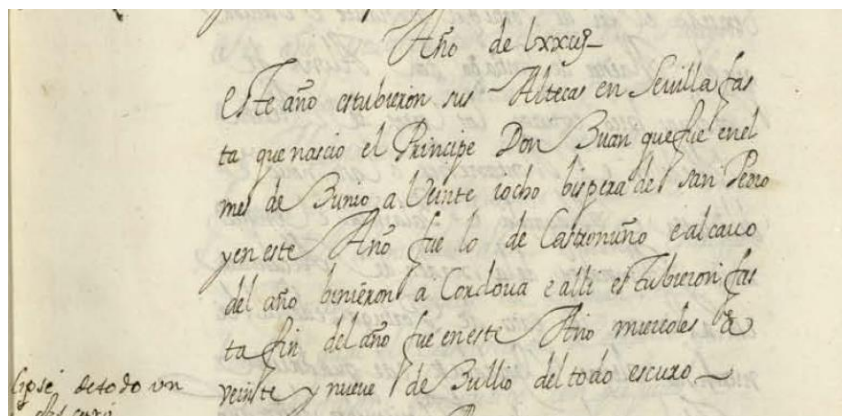 Año de lxxviijº
este año estubieron sus Altecas en Sevilla fas
ta que nascio el Principe Don Juan que fue en el
mes de Junio a Veinte iocho bispera de san Pedro
y en este Año fue lo de Castronuño e al cavo
del año binieron a Cordova e alli estubieron fas
ta fin del año fue en este Año miercoles a
veinte y nueve de Jullio del todo escuro
de todo un